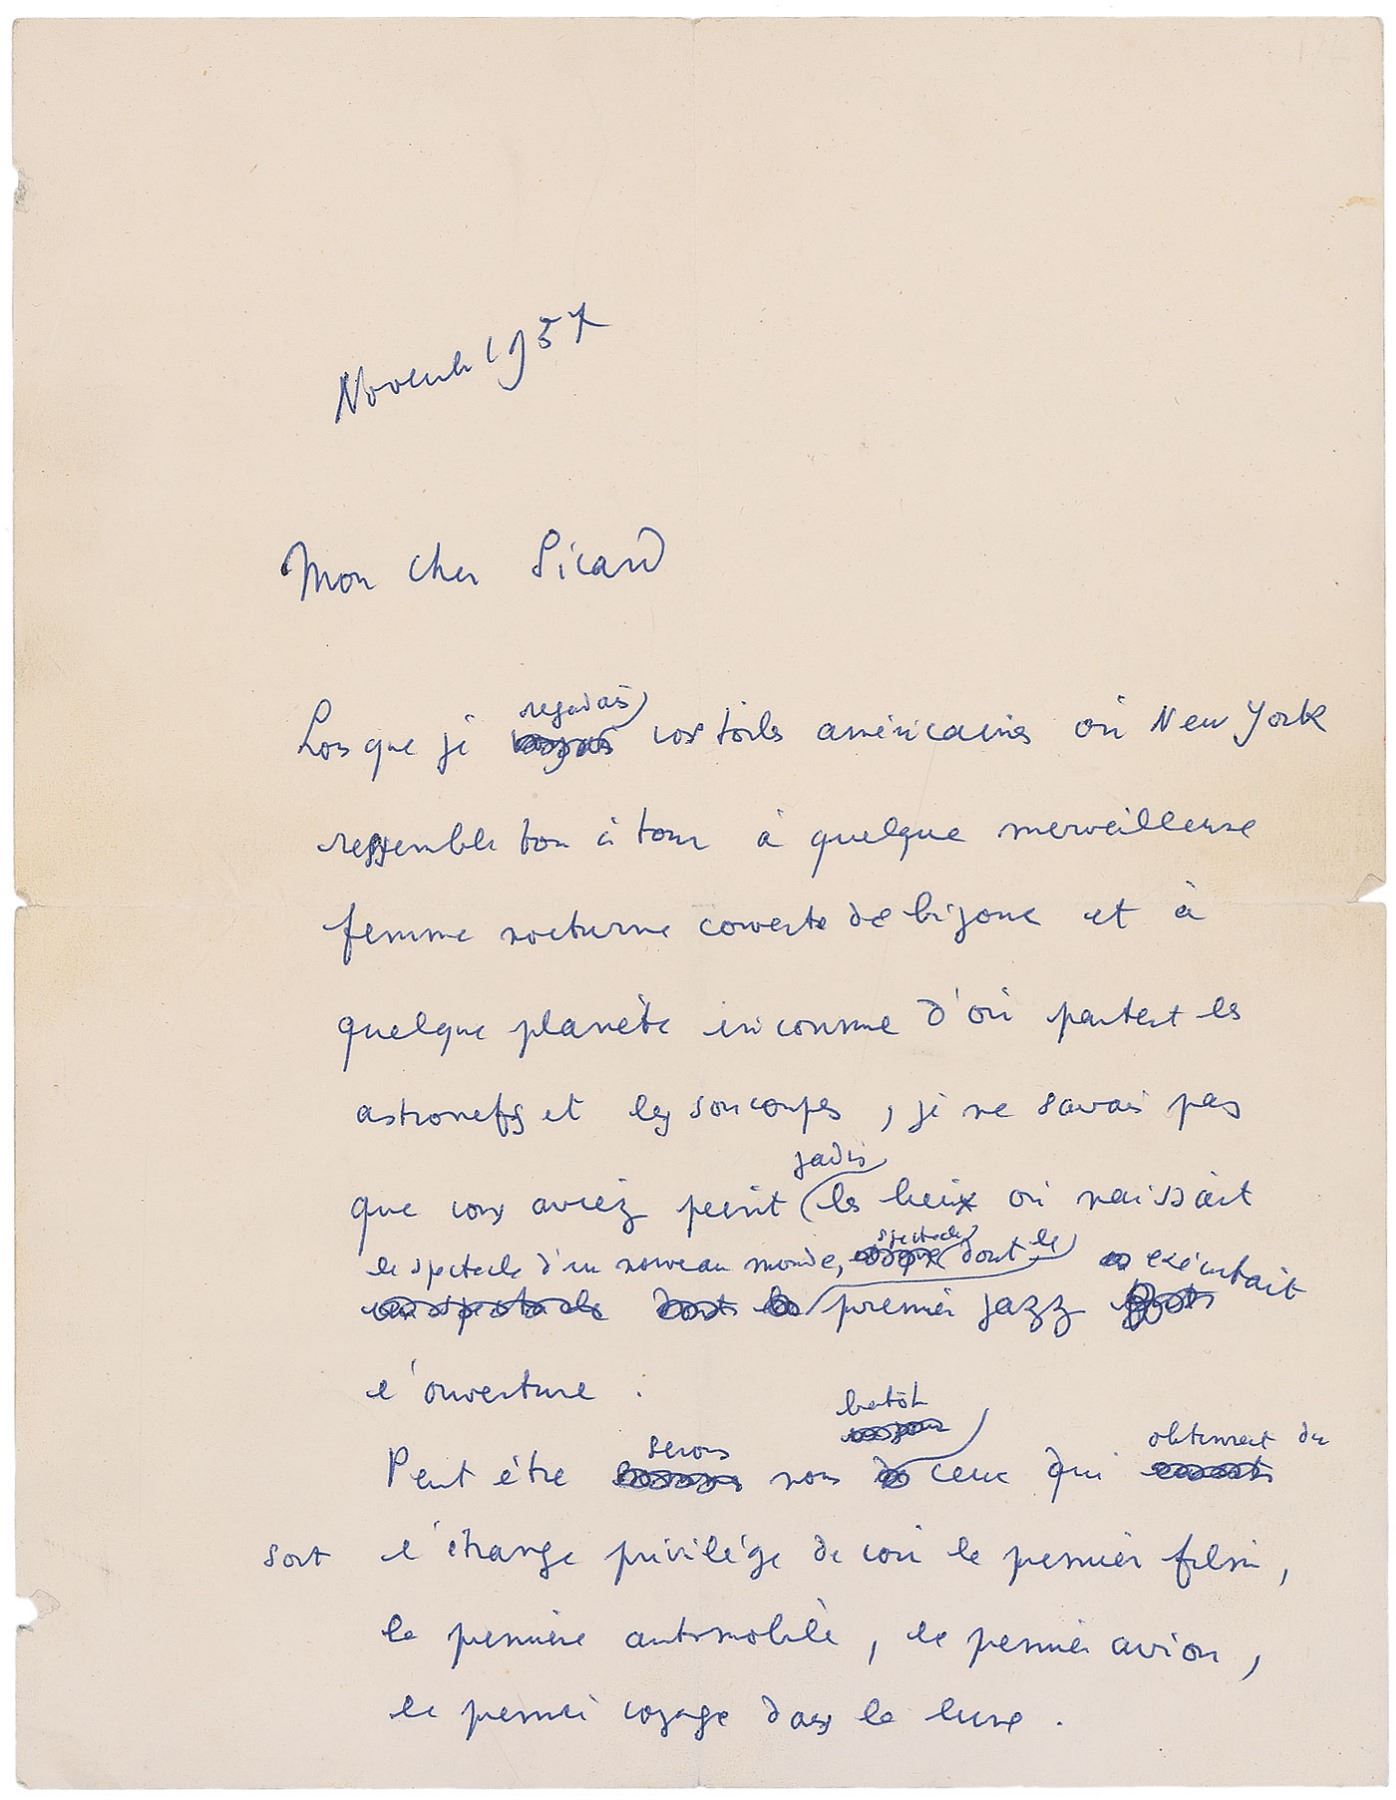 Novembre 1957
Mon cher Sicard
regardais
Lorsque je vos toiles américaines où New York
ressemble tour à tour à quelque merveilleuse
femme nocturne couverte de bijoux et à
quelque planète inconnue d'où partent les
astronefs et les soucoupes, je ne savais pas
jadis
que vous aviez peint les lieux où naissait
spectacle dont le
le spectacle d'un nouveau monde, exécutait
premier jazz
l'ouverture.
bientôt
serons obtinrent du
Peut être nous ceux qui
sort l'étrange privilège de voir le premier film,
la première automobile, le premier avion,
le premier voyage dans la lune.